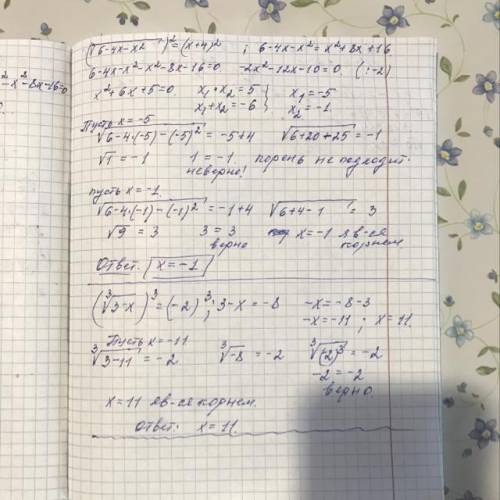 (√6-4x-x²)² = (x+4)² ; 6-4x-x² = x²+8x+16
6-4x-x²-x²-8x-16=0 -2x²-12x-10=0 (:-2)
x²+6x+5=0 x₁·x₂=5 } x₁=-5
x₁+x₂=-6 } x₂=-1
Пусть x=-5
√6-4·(-5)-(-5)² = -5+4 √6+20+25 = -1
√1 = -1 1 = -1 корень не подходит.
неверно!
пусть x=-1
√6-4·(-1)-(-1)² = -1+4 √6+4-1 = 3
√9 = 3 3 = 3 x=-1 яв-ся
верно корнем
Ответ: x=-1
(³√3-x)³ = (-2)³; 3-x=-8 -x=-8-3
-x=-11 ; x=11.
Пусть x=-11
³√3-11 = -2 ³√-8 = -2 ³√(-2)³ = -2
-2 = -2
верно.
x=11 яв-ся корнем.
Ответ: x=11.